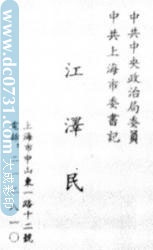 中共中央政治局委員
中共上海市委書記
江澤民
上海市中山東一路十二號
www.dc0731.com
大成彩印